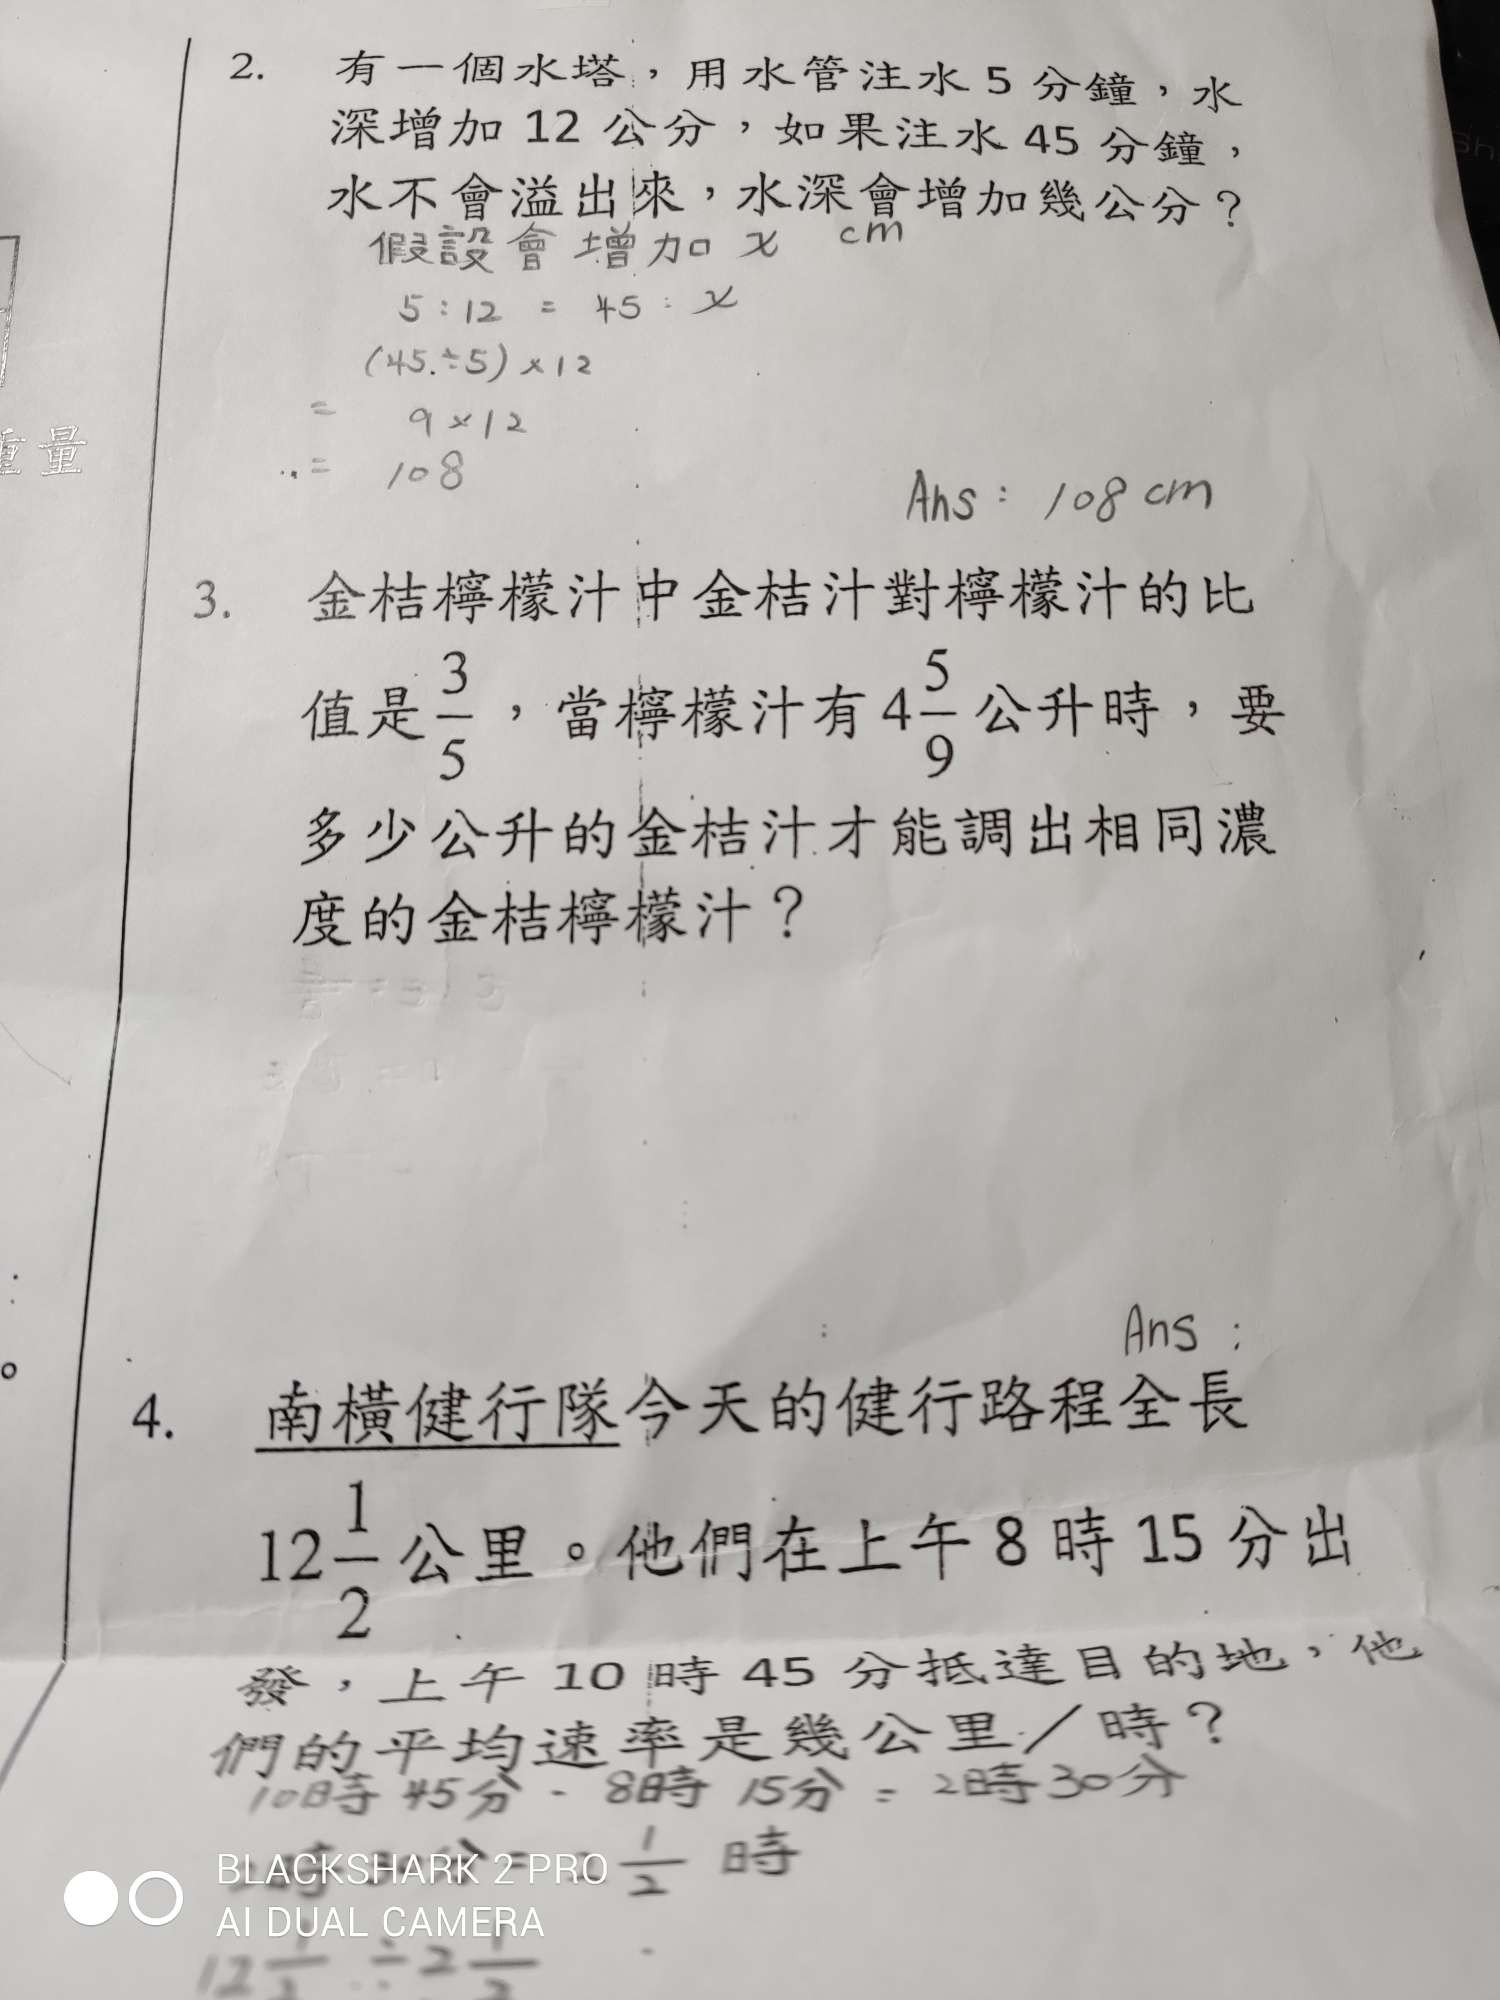 2. 有一個水塔，用水管注水 5 分鐘，水
深增加 12 公分，如果注水 45 分鐘，
水不會溢出來，水深會增加幾公分？
假設會增加 x cm
5 : 12 = 45 : x
(45÷5) × 12
= 9 × 12
= 108
Ans : 108 cm
重量
3. 金桔檸檬汁中金桔汁對檸檬汁的比
值是 3/5，當檸檬汁有 4 5/9 公升時，要
多少公升的金桔汁才能調出相同濃
度的金桔檸檬汁？
Ans :
4. 南橫健行隊今天的健行路程全長
12 1/2 公里。他們在上午 8 時 15 分出
發，上午 10 時 45 分抵達目的地，他
們的平均速率是幾公里／時？
10時45分 - 8時15分 = 2時30分
1/2 時
12 1/2 ÷ 2 1/2
BLACKSHARK 2 PRO
AI DUAL CAMERA